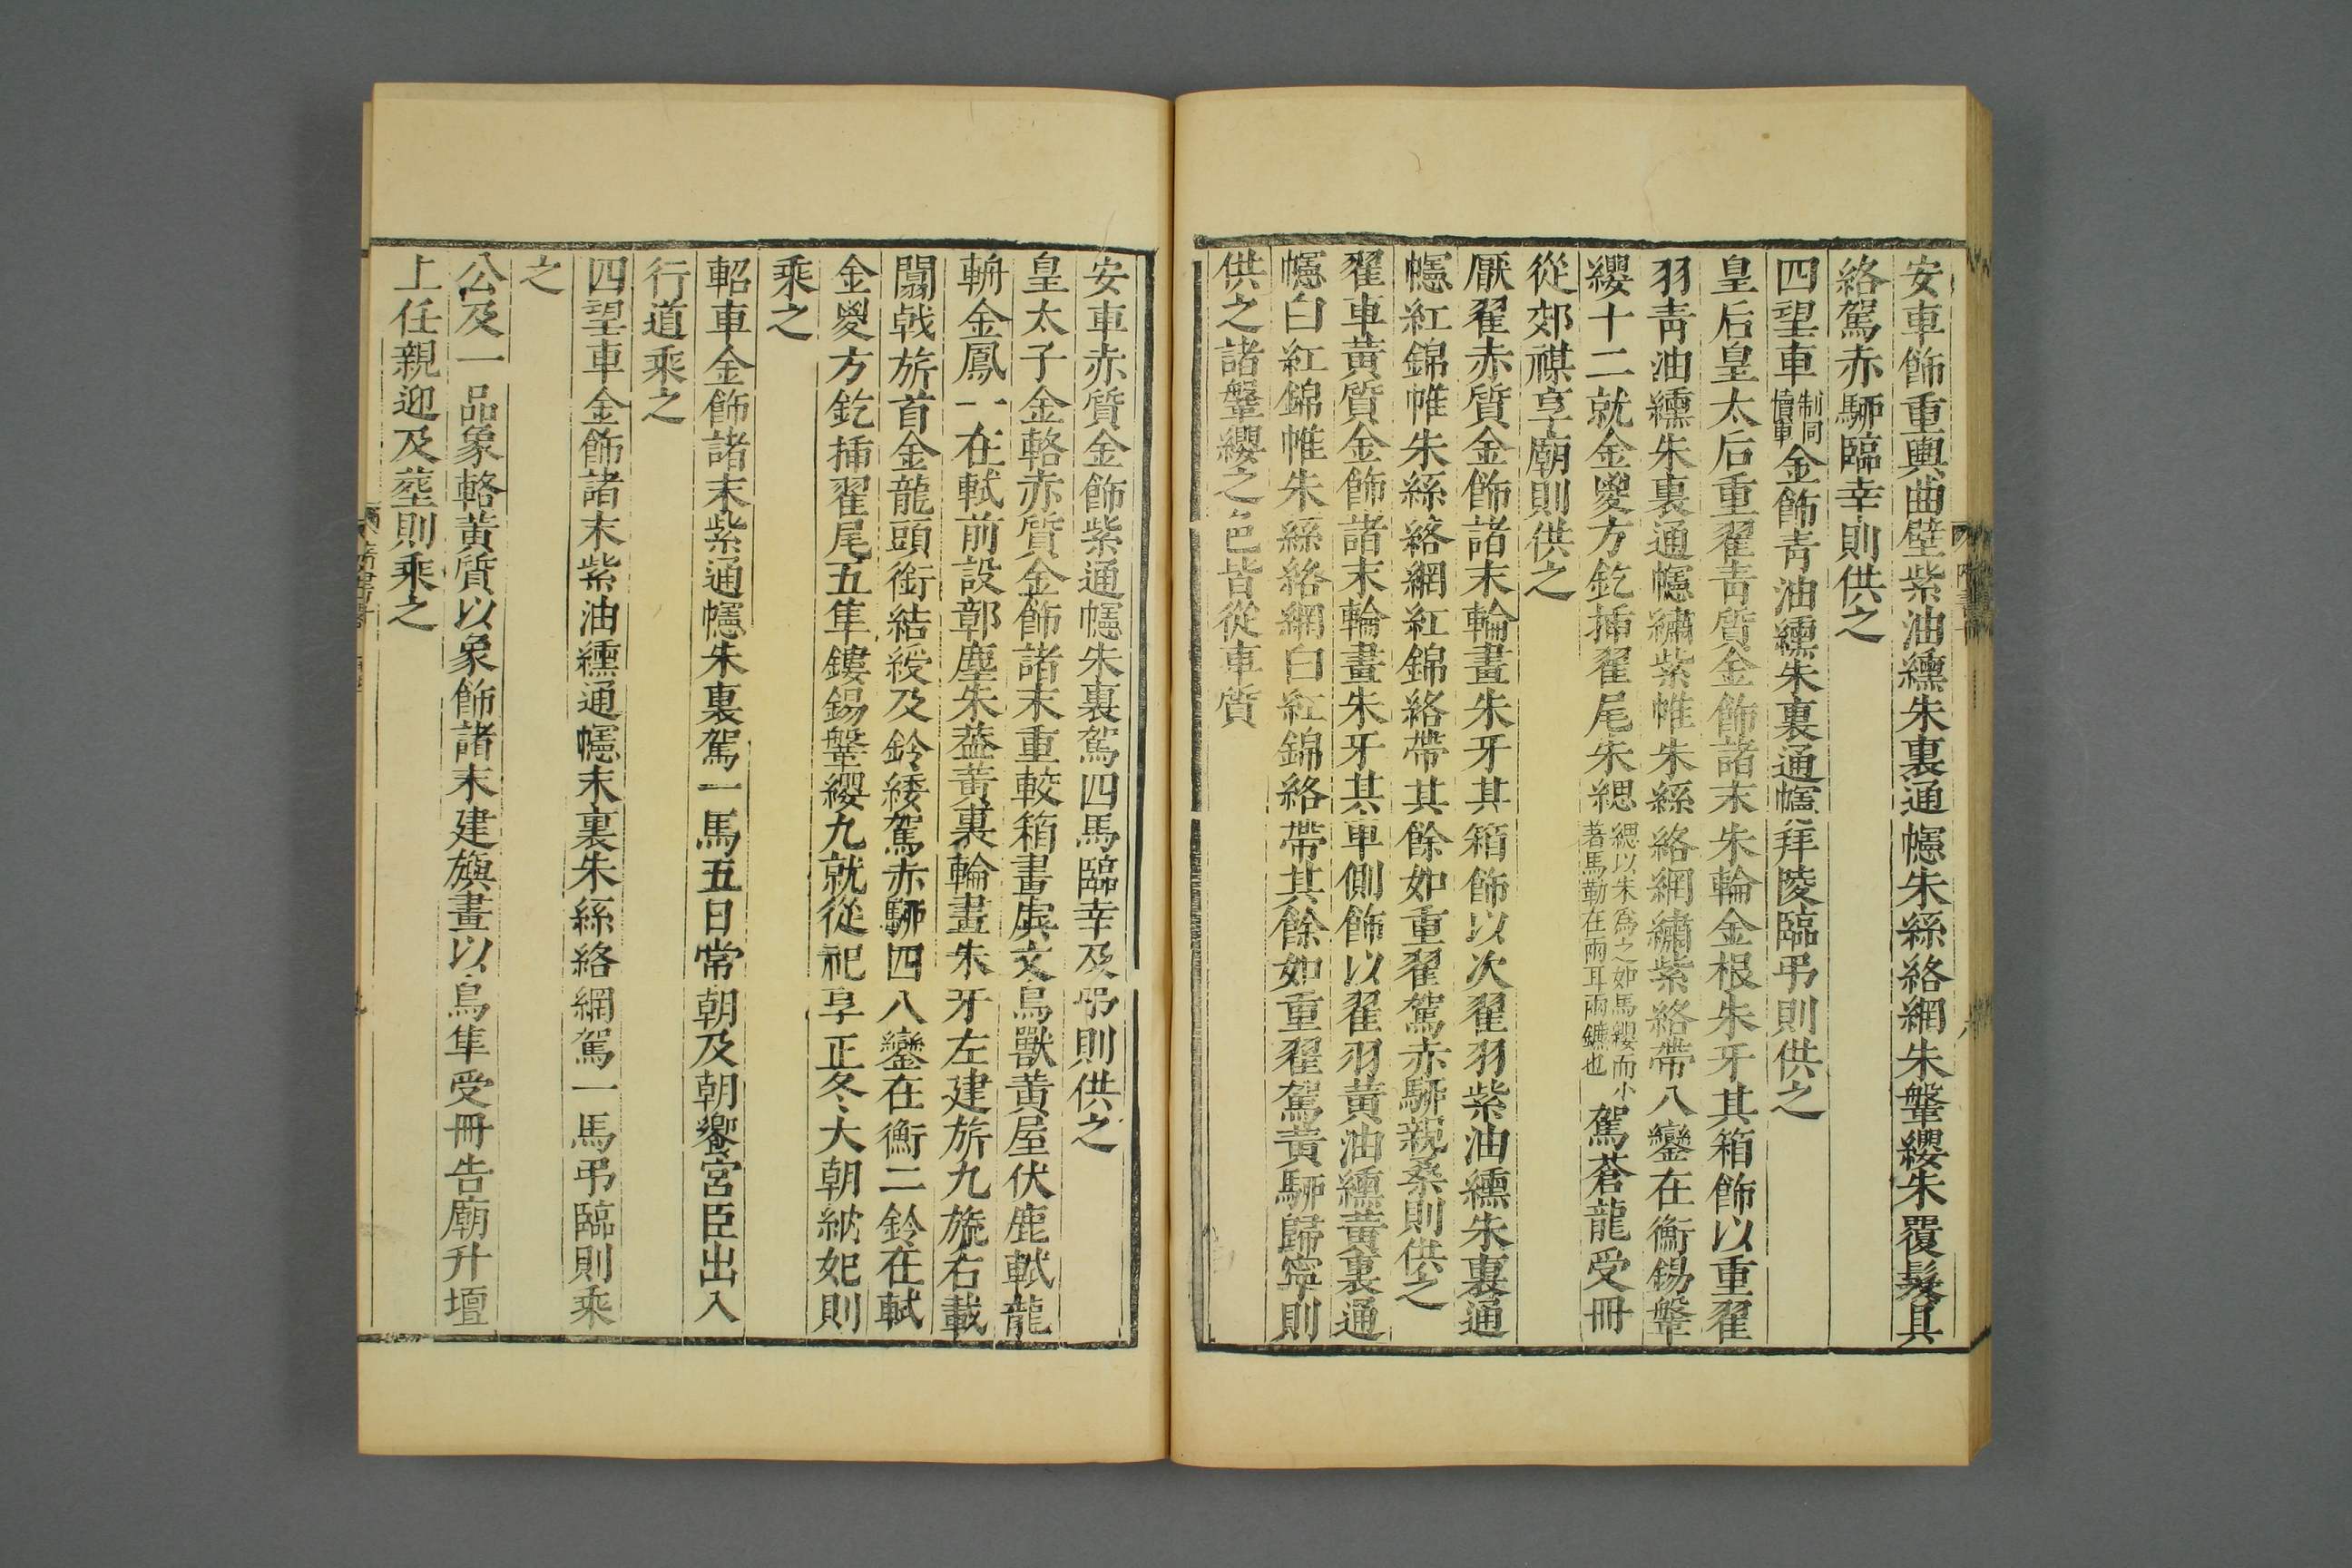 安車飾重輿曲壁紫油纁朱裏通幰朱絲絡網朱鞶纓朱覆髮具
絡駕赤駵臨幸則供之
四望車制同犢車金飾青油纁朱裏通幰拜陵臨弔則供之
皇后皇太后重翟青質金飾諸末朱輪金根朱牙其箱飾以重翟
羽青油纁朱裏通幰繡紫帷朱絲絡網繡紫絡帶八鑾在衡鍚鞶
纓十二就金㚇方釳插翟尾朱緦緦以朱爲之如馬纓而小著馬勒在兩耳兩鑣也駕蒼龍受冊
從郊禖享廟則供之
厭翟赤質金飾諸末輪畫朱牙其箱飾以次翟羽紫油纁朱裏通
幰紅錦帷朱絲絡網紅錦絡帶其餘如重翟駕赤駵親桑則供之
翟車黃質金飾諸末輪畫朱牙其車側飾以翟羽黃油纁黃裏通
幰白紅錦帷朱絲絡網白紅錦絡帶其餘如重翟駕黃駵歸寧則
供之諸鞶纓之色皆從車質
安車赤質金飾紫通幰朱裏駕四馬臨幸及弔則供之
皇太子金輅赤質金飾諸末重較箱畫虡文鳥獸黃屋伏鹿軾龍
輈金鳳一在軾前設鄣塵朱葢黃裏輪畫朱牙左建旂九旒右載
闟戟旂首金龍頭銜結綬及鈴緌駕赤駵四八鑾在衡二鈴在軾
金㚇方釳插翟尾五隼鏤鍚鞶纓九就從祀享正冬大朝納妃則
乘之
軺車金飾諸末紫通幰朱裏駕一馬五日常朝及朝饗宮臣出入
行道乘之
四望車金飾諸末紫油纁通幰朱裏朱絲絡網駕一馬弔臨則乘
之
公及一品象輅黃質以象飾諸末建旟畫以鳥隼受冊告廟升壇
上任親迎及葬則乘之